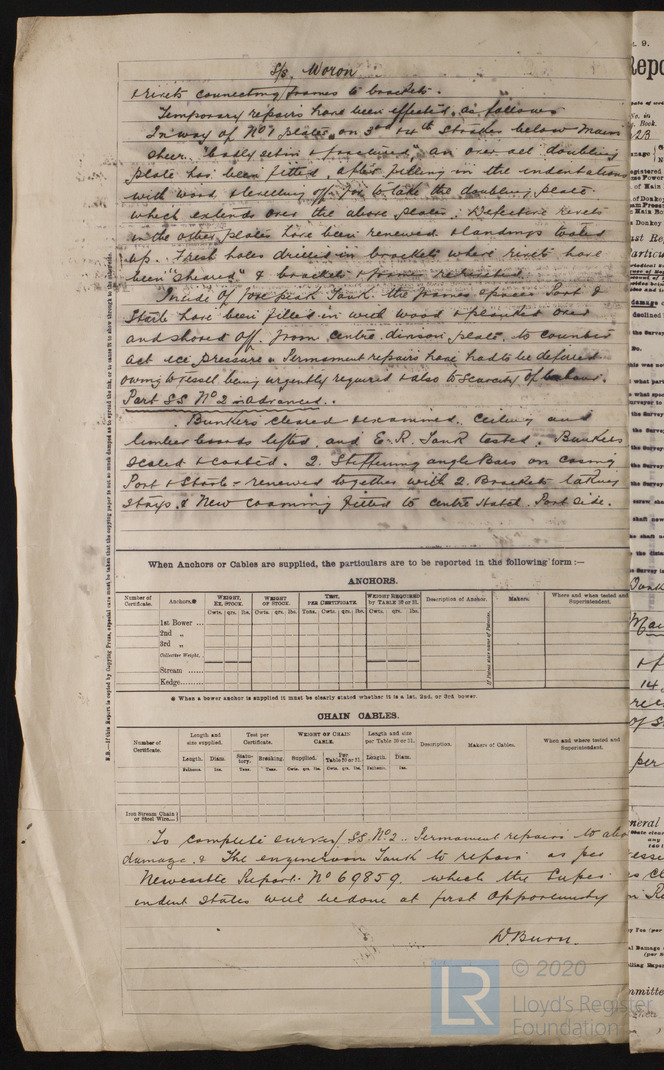 S/s. Woron
& rivets connecting frames to brackets.
Temporary repairs have been effected, as follows
In way of No 1 plates, on 3rd & 4th Strakes below Main
Sheer, "badly set in & fractured", an over all doubling
plate has been fitted, after filling in the indentations
with wood & levelling off for to take the doubling plate.
which extends over the above plates; Defective rivets
in the other plates have been renewed & landings tested
up. Fresh holes drilled in brackets where rivets have
been "Sheared" & brackets & frames reriveted.
Inside of fore peak Tank. the frames spaces Port &
Starb have been filled in with wood & planked over
and shored off. from centre division plate. to counter
act ice pressure. Permanent repairs have had to be deferred
owing to vessel being urgently required & also to scarcity of labour.
Part SS No 2 in advanced.
Bunkers cleared & examined. ceiling and
limber boards lifted, and E.R. Tank tested. Bunkers
scaled & coated. 2. Stiffening angle Bars on casing
Port & Starb - renewed together with 2. Brackets taking
Stays. & New Coaming fitted to centre Hatch. Port side.
When Anchors or Cables are supplied, the particulars are to be reported in the following form :—
ANCHORS.
Number of Certificate. Anchors.* WEIGHT, EX. STOCK. WEIGHT OF STOCK. TEST, PER CERTIFICATE. WEIGHT REQUIRED by TABLE Description of Anchor. Makers. Where and when tested and Superintendent.
Cwts. qrs. lbs. Cwts. qrs. lbs. Tons. Cwts. qrs. lbs. Cwts. qrs. lbs.
1st Bower ...
2nd „
3rd „
Collective Weight.
Stream ......
Kedge.........
* When a bower anchor is supplied it must be clearly stated whether it is a 1st, 2nd, or 3rd bower.
CHAIN CABLES.
Number of Certificate. Length and size supplied. Test per Certificate. WEIGHT OF CHAIN CABLE. Length and size per Table Description. Makers of Cables. When and where tested and Superintendent.
Length. Diam. Statutory. Breaking. Supplied. Per Table Length. Diam.
Fathoms. Ins. Tons. Tons. Cwts. qrs. lbs. Cwts. qrs. lbs. Fathoms. Ins.
Iron Stream Chain or Steel Wire...
To complete survey SS. No 2.. Permanent repairs to
damage. & The engineroom Tank to repair as per
Newcastle Report. No 69859. which the Super
indent States will be done at first opportunity
W. Burn.
© 2020
Lloyd's Register
Foundation
LR